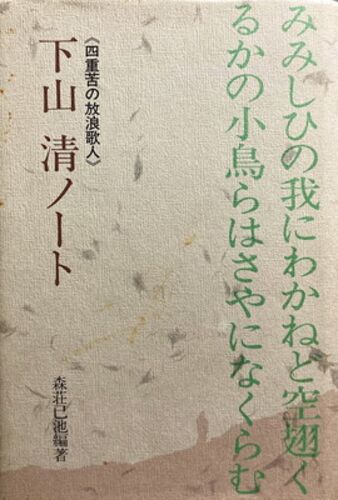 みみしひの我にわかねと空翅く
るかの小鳥らはさやになくらむ
《四重苦の放浪歌人》
下山 清ノート
森荘已池編著